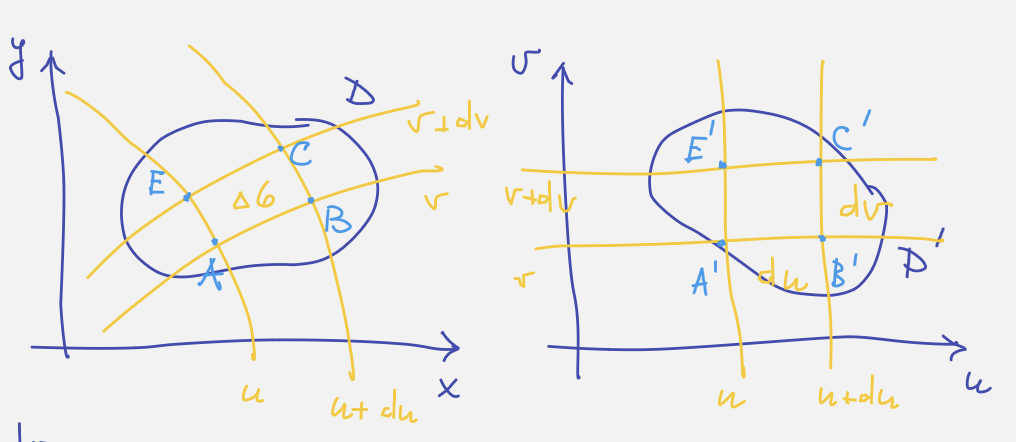 y
D
v+dv
C
E
Δσ
v
B
A
x
u
u+du
v
C'
E'
v+dv
dv
D'
v
A'
du
B'
u
u
u+du